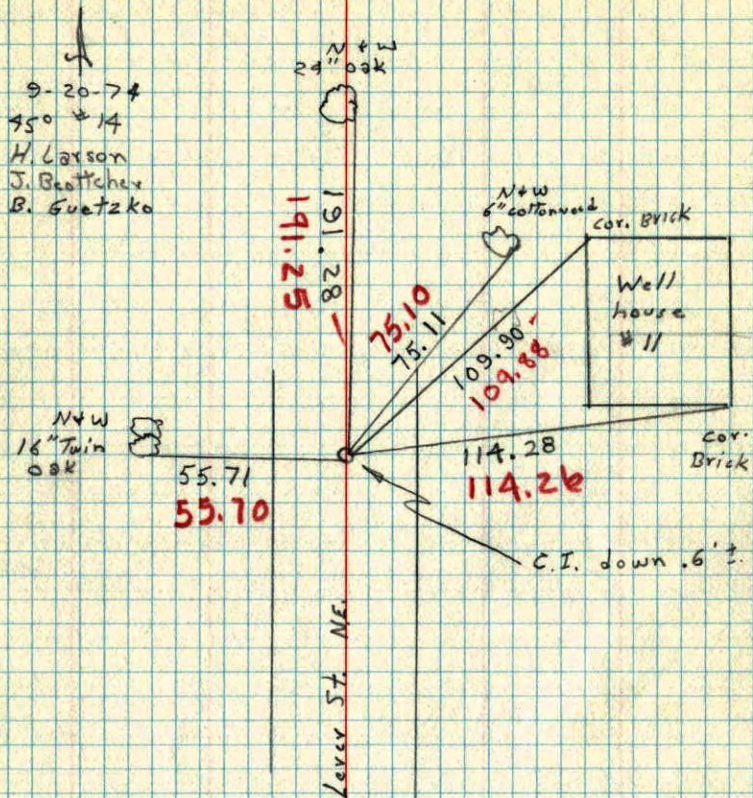 9-20-74
45° #14
H. Larson
J. Beottcher
B. Guetzko
N+W
24" oak
191.28
191.25
N+W
6" cottonwood
75.10
75.11
cor. Brick
Well
house
#11
109.90
109.88
N+W
16" Twin
oak
55.71
55.70
114.28
114.26
cor.
Brick
C.I. down .6' ±
Lever St. NE.